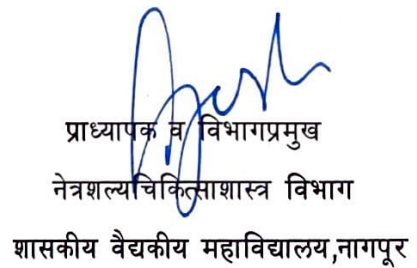 प्राध्यापक व विभागप्रमुख
नेत्रशल्यचिकित्साशास्त्र विभाग
शासकीय वैद्यकीय महाविद्यालय,नागपूर